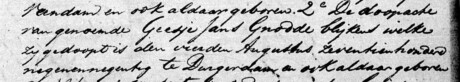 Vandam en ook aldaar geboren. 2e De doopacte
van genoemde Geesje Jans Gnodde blijkens welke
zy gedoopt is den vierden Augustus, Zeventienhonderd
negenennegentig te Durgerdam en ook aldaar geboren